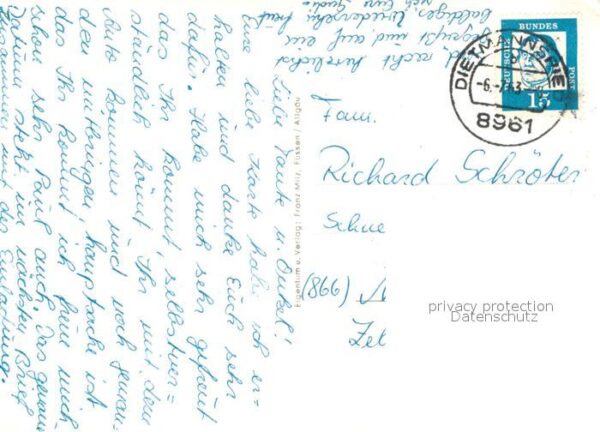 Liebe Tante u. Onkel!
Eure liebe Karte habe ich er=
halten und danke Euch sehr
dafür. Habe mich sehr gefreut
das Ihr kommt, selbstver=
ständlich könnt Ihr mit dem
Auto kommen und noch jeman=
den mitbringen, hauptsache ist
das Ihr kommt, ich freue mich
schon sehr Paul auch. Das genaue
Datum steht im nächsten Brief
zusammen mit der Einladung.
recht herzlichst
gegrüßt und auf ein
baldiges Wiedersehn freut
sich Eure
Eigentum u. Verlag: Franz Milz, Füssen / Allgäu
DEUTSCHE
BUNDES
POST
15
DIETMANNSRIED
8961
Fam.
Richard Schröter
Schne
(866)
Zel
privacy protection
Datenschutz